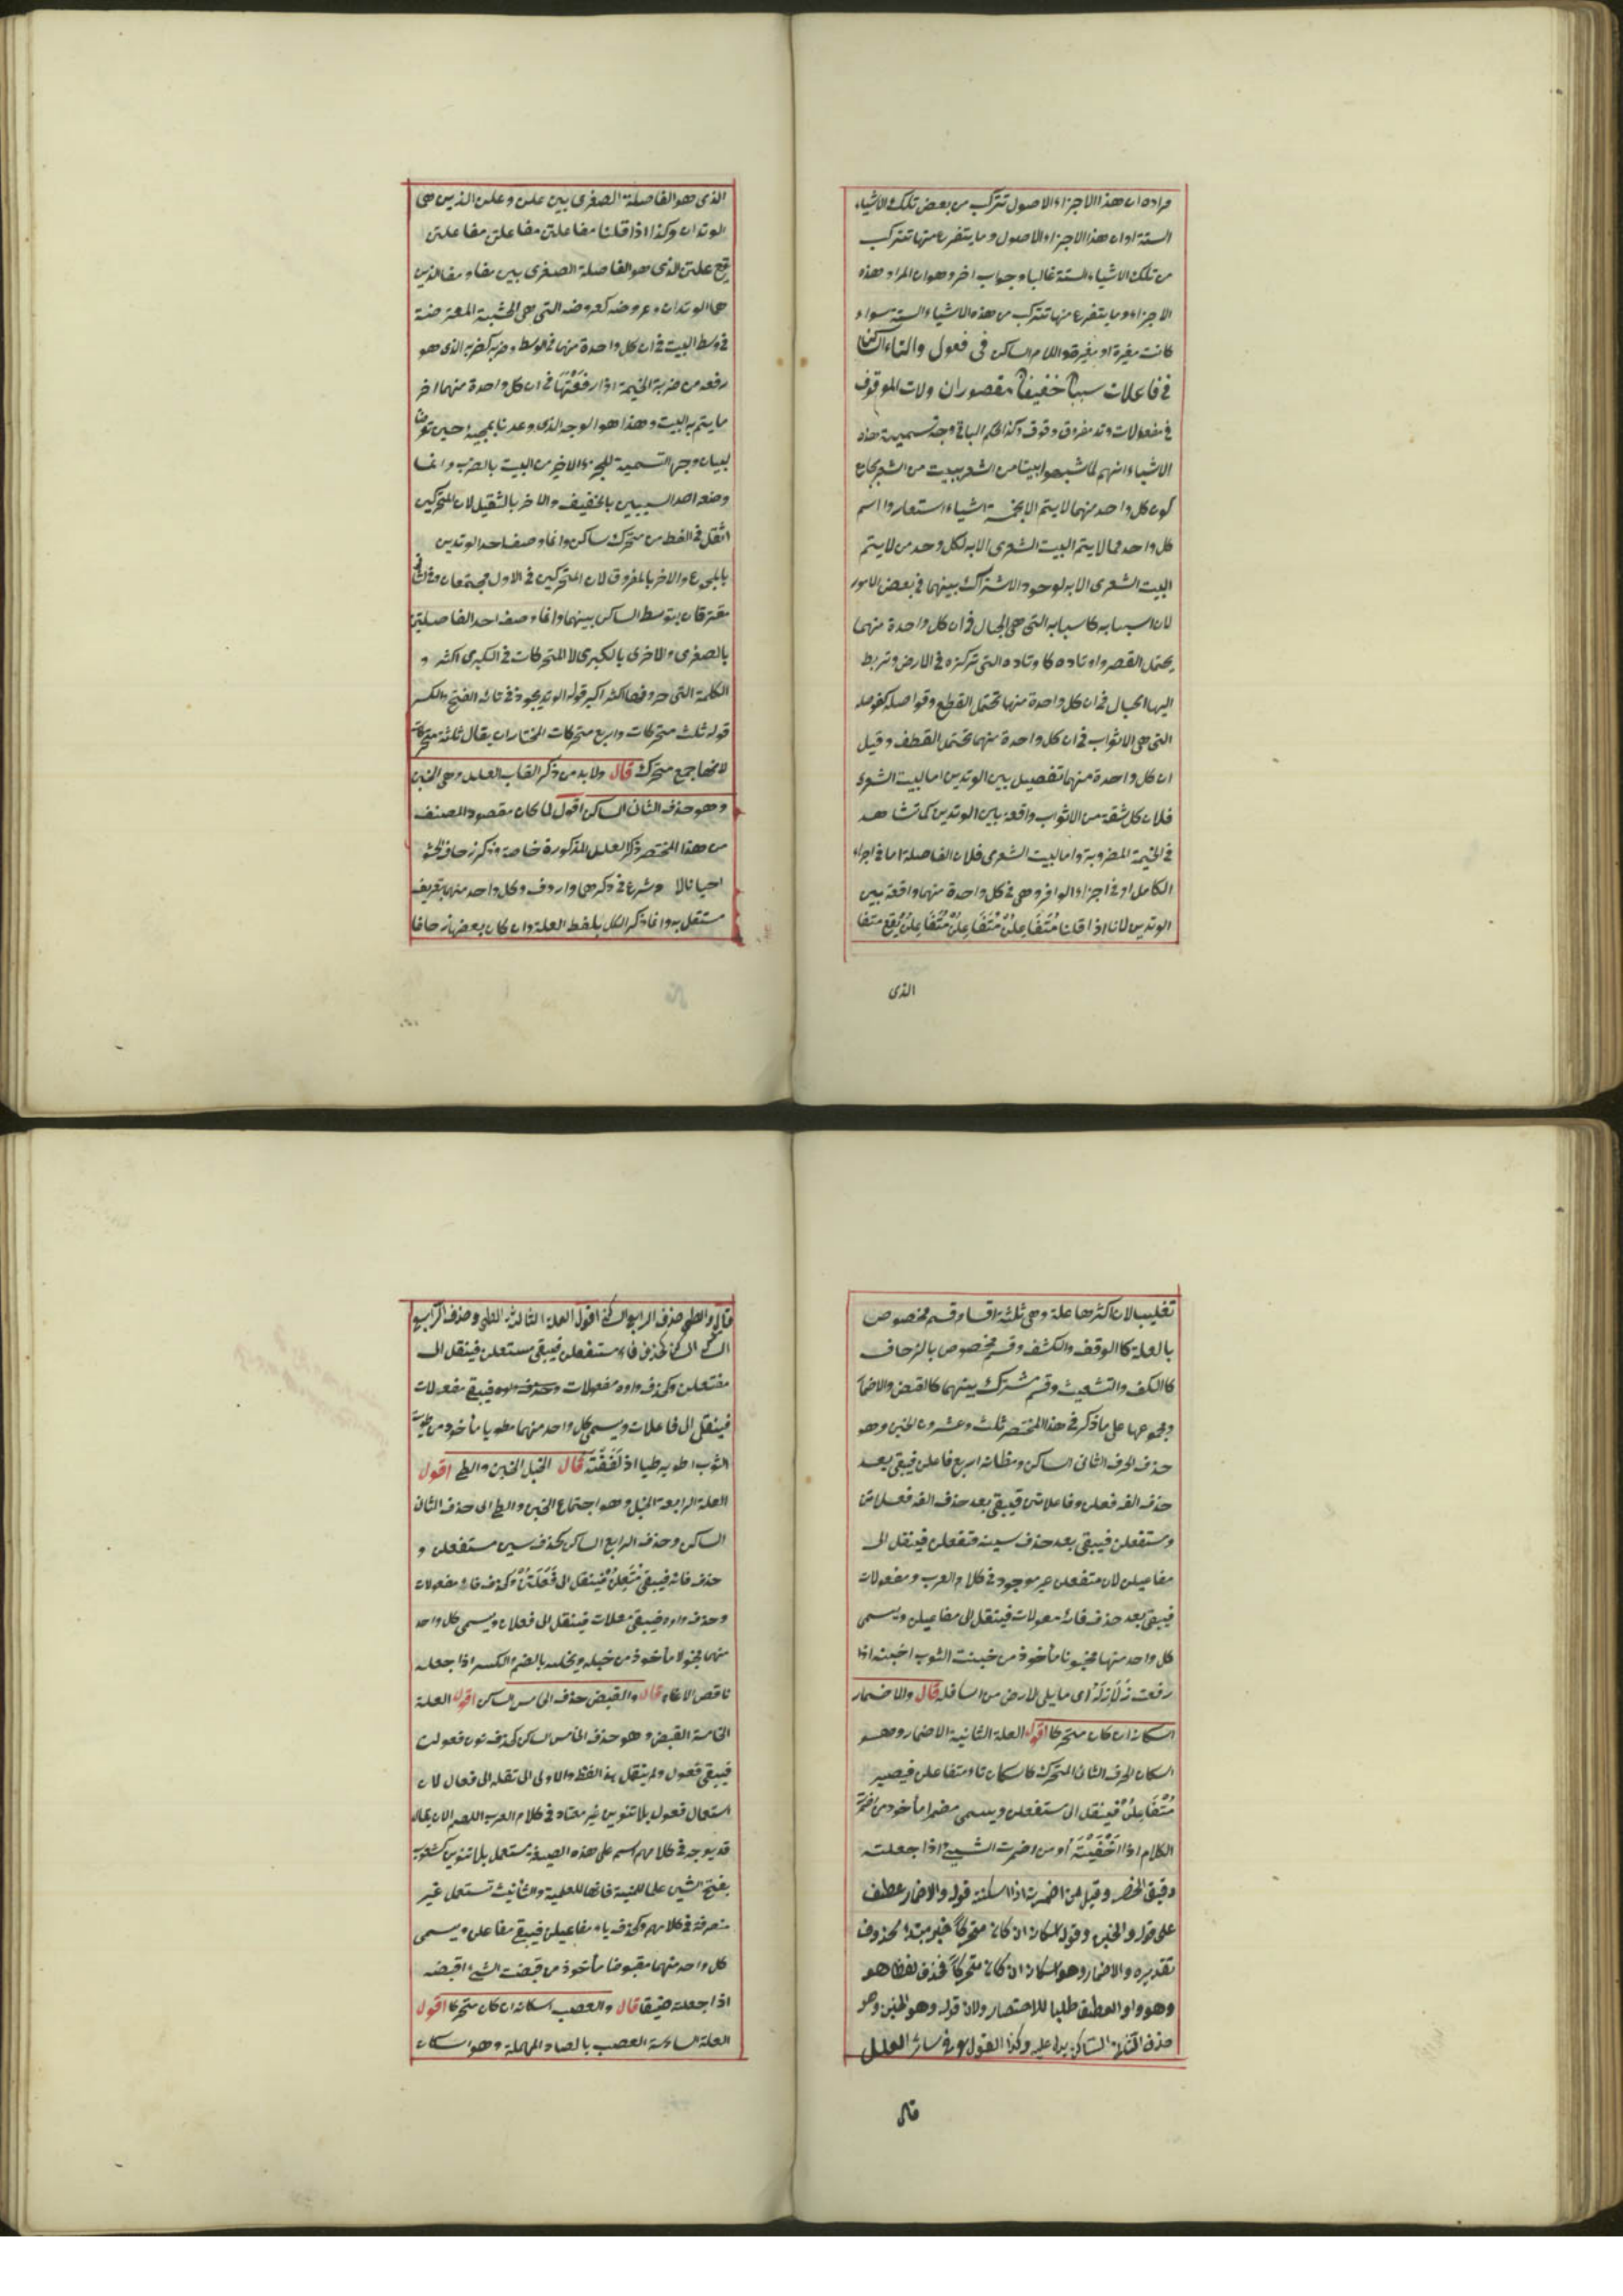 مراده ان هذا الاجزاء الاصول تتركب من بعض تلك الاشياء
الستة اوان هذا الاجزاء الاصول وما يتفرع منها تتركب
من تلك الاشياء الستة غالبا وجواب اخر وهو ان المراد هذه
الاجزاء وما يتفرع منها تتركب من هذه الاشياء الستة سواء
كانت مغيرة او بغيرة واللام الساكن فى فعول والتاء الساكنة
فى فاعلات سببا خفيفا مقصوران ولات الموقوف
فى مفعولات وتد مفروق وقوف وكذا حكم الباقى وجه تسمية هذه
الاشياء انهم لما شبهوا بيتا من الشعر ببيت من الشعر بجامع
كون كل واحد منهما لا يتم الا بخمسة اشياء استعاروا اسم
كل واحد مما لا يتم البيت الشعرى الا به لكل وحد من لا يتم
البيت الشعرى الا به لوجود الاشتراك بينهما فى بعض الامور
لان اسبابه كاسبابه التى هى الحبال فى ان كل واحدة منهما
يحتمل القصر واوتاده كاوتاده التى تركزه فى الارض وتربط
اليها الحبال فى ان كل واحدة منها تحتمل القطع وفواصله كفواصله
التى هى الاثواب فى ان كل واحدة منهما تحتمل القطف وقيل
ان كل واحدة منهما تفصيل بين الوتدين اما بيت الشعر
فلان كل شقة من الاثواب واقعة باين الوتدين كما تشاهد
فى الخيمة المضروبة واما البيت الشعرى فلان الفاصلة اما فى اجزاء
الكامل او فى اجزاء الوافر وهى فى كل واحدة منهما واقعة بين
الوتدين لانا اذا قلنا مُتَفَاعِلُنْ مُتَفَاعِلُنْ مُتَفَاعِلُنْ يقع متفا
الذى
الذى هو الفاصلة الصغرى بين علن وعلن الذين هى
الوتدان وكذا اذا قلنا مفاعلتن مفاعلتن مفاعلتن
يقع علتن الذى هو الفاصلة الصغرى بين مفا ومفا الذين
هما الوتدان وعروضه كعروضه التى هى الخشبة المعترضة
فى وسط البيت فى ان كل واحدة منها فى الوسط وضربه كضربه الذى هو
رفعه من ضربة الخيمة اذا رفعتها فى ان كل واحدة منهما اخر
ما يتم به البيت وهذا هو الوجه الذى وعدنا بمجيئه حين تعرضنا
لبيان وجه التسمية للجزء الاخير من البيت بالضرب وانما
وصف احد السببين بالخفيف والاخر بالثقيل لان المتحركين
اثقل فى اللفظ من متحرك وساكن وانما وصف احد الوتدين
بالمجموع والاخر بالمفروق لان المتحركين فى الاول مجتمعان وفى الثانى
مفترقان بتوسط الساكن بينهما وانما وصف احد الفاصلتين
بالصغرى والاخرى بالكبرى لا المتحركات فى الكبرى اكثر و
الكلمة التى حروفها اكثر اكبر قوله الوتد يجوز فى تائه الفتح والكسر
قوله ثلث متحركات واربع متحركات المختار ان يقال ثلثة متحركات
لانها جمع متحرك قال ولا بد من ذكر القاب العلل وهى الخبن
وهو حذف الثانى الساكن اقول لما كان مقصود المصنف
من هذا المختصر ذكر العلل المذكورة خاصة وذكر زحاف الحشو
احيانا شرع فى ذكرها وكل واحد منها بتعريف
مستقل به وانما ذكر الكل بلفظ العلة وان كان بعضها زحافا
تغليبا لان اكثرها علة وهى ثلثة اقسام قسم مخصوص
بالعلة كالوقف والكشف وقسم مخصوص بالزحاف
كالكف والتشعيث وقسم مشترك بينهما كالقبض والاضمار
ومجموعها على ما ذكر فى هذا المختصر ثلث وعشرون الخبن وهو
حذف الحرف الثانى الساكن ومظانه اربع فاعلن فيبقى بعد
حذف الفه فعلن وفاعلاتن فيبقى بعد حذف الفه فعلاتن
ومستفعلن فيبقى بعد حذف سينه متفعلن فينقل الى
مفاعيلن لان متفعلن غير موجود فى كلام العرب ومفعولات
فيبقى بعد حذف فائه معولات فينقل الى مفاعيلن ويسمى
كل واحد منها مخبونا مأخوذ من خبنت الثوب اخبنه اذا
رفعت ذلاذله اى ما يلى الارض من اسافله قال والاضمار
اسكانه ان كان متحركا اقول العلة الثانية الاضمار وهو
اسكان الحرف الثانى المتحرك كاسكان تاء متفاعلن فيصير
مُتْفَاعِلُنْ فينقل الى مستفعلن ويسمى مضمرا مأخوذ من اضمرت
الكلام اذا اخفيته او من اضمرت الشيئ اذا جعلته
دقيق الخصر وقيل من اضمرته اذا اسكنته قوله والاضمار عطف
على قوله والخبن وقوله اسكانه ان كان متحركا خبر مبتدأ محذوف
تقديره والاضمار وهو اسكانه ان كان متحركا فحذف لفظا هو
وهو واو العطف طلبا للاختصار ولان قوله وهو الخبن وهو
حذف الثانى الساكن يدل عليه وكذا القول فى سائر العلل
قال
قال والطى حذف الرابع الساكن اقول العلة الثالثة الطى وحذف الرابع
الساكن كحذف فاء مستفعلن فيبقى مستعلن فينقل الى
مفتعلن وكحذف واو مفعولات فيبقى مفعلات
فينقل الى فاعلات ويسمى كل واحد منهما مطويا مأخوذ من طويت
الثوب اطويه طيا اذ لففته قال الخبل الخبن والطى اقول
العلة الرابعة الخبل وهو اجتماع الخبن والطى اى حذف الثانى
الساكن وحذف الرابع الساكن كحذف سين مستفعلن و
حذف فائه فيبقى مُتَعِلُنْ فينقل الى فَعَلَتُنْ وكحذف فاء مفعولات
وحذف واوه فيبقى معلات فينقل الى فعلات ويسمى كل واحد
منهما مخبولا مأخوذ من خبله يخبله بالضم والكسر اذا جعله
ناقص الاعضاء قال والقبض حذف الخامس الساكن اقول العلة
الخامسة القبض وهو حذف الخامس الساكن كحذف نون فعولن
فيبقى فعول ولم ينقل بهذا اللفظ والاولى ان تنقله الى فعال لان
استعمال فعول بلا تنوين غير معتاد فى كلام العرب اللهم الا ان يقال
قد يوجد فى كلامهم اسم على هذه الصيغة مستعمل بلا تنوين كشعوب
بفتح الشين علما للمنية فانها للعلمية والتأنيث تستعمل غير
منصرفة فى كلامهم وكحذف ياء مفاعيلن فيبقى مفاعلن ويسمى
كل واحد منهما مقبوضا مأخوذ من قبضت الشيئ اقبضه
اذا جعلته ضيقا قال والعصب اسكانه ان كان متحركا اقول
العلة السادسة العصب بالصاد المهملة وهو اسكان